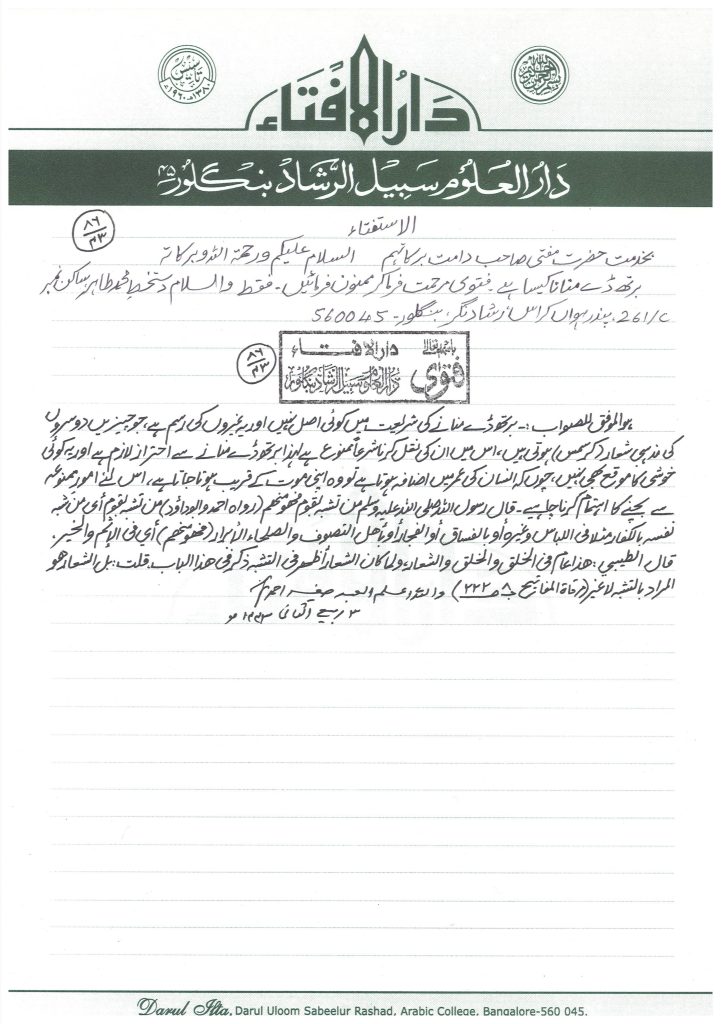 تأسيس ١٣٨٠ھ ١٩٦٠ء
دَارُ الْاِفْتَاء
دَارُ العُلُوم سَبِيْل الرَّشَاد بنگلور ۴۵
الاستفتاء
۸۶ / ۳م
بخدمت حضرت مفتی صاحب دامت برکاتہم السلام علیکم ورحمۃ اللہ وبرکاتہ
برتھ ڈے منانا کیسا ہے۔ فتویٰ مرحمت فرماکر ممنون فرمائیں۔ فقط والسلام دستخط محمد طاہر ساکن نمبر
261/c، پندرہواں کراس، ارشاد نگر، بنگلور۔ 560045
باسمہ تعالیٰ فتویٰ دارالافتاء دارالعلوم سبیل الرشاد بنگلور
۸۶ / ۳م
ہوالموفق للصواب:۔ برتھ ڈے منانے کی شریعت میں کوئی اصل نہیں اور یہ غیروں کی رسم ہے، جو چیزیں دوسروں
کی مذہبی شعار (کرسمس) ہوتی ہیں، اس میں ان کی نقل کرنا شرعاً ممنوع ہے لہذا برتھ ڈے منانے سے احتراز لازم ہے اور یہ کوئی
خوشی کا موقع بھی نہیں، چوں کہ انسان کی عمر میں اضافہ ہوتا ہے تو وہ اپنی موت کے قریب ہوتا جاتا ہے، اس لئے امور ممنوعہ
سے بچنے کا اہتمام کرنا چاہے۔ قال رسول اللہ صلی اللہ علیہ وسلم من تشبہ بقوم فھو منھم (رواہ احمد وابوداؤد) من تشبہ بقوم أي من شبه
نفسه بالكفار مثلا في اللباس وغيره أو بالفساق أو الفجار أو بأهل التصوف والصلحاء الأبرار (فھو منھم) أي في الإثم والخير.
قال الطيبي: هذا عام في الخلق والخلق والشعار، ولما كان الشعار أظهر في التشبه ذكر في هذا الباب، قلت: بل الشعار هو
المراد بالتشبه لا غير (مرقاة المفاتيح ج۸ ص۲۲۲) واللہ اعلم العبد صغیر احمد
۳ ربیع الثانی ۱۴۳۳ھ
Darul Ifta, Darul Uloom Sabeelur Rashad, Arabic College, Bangalore-560 045.